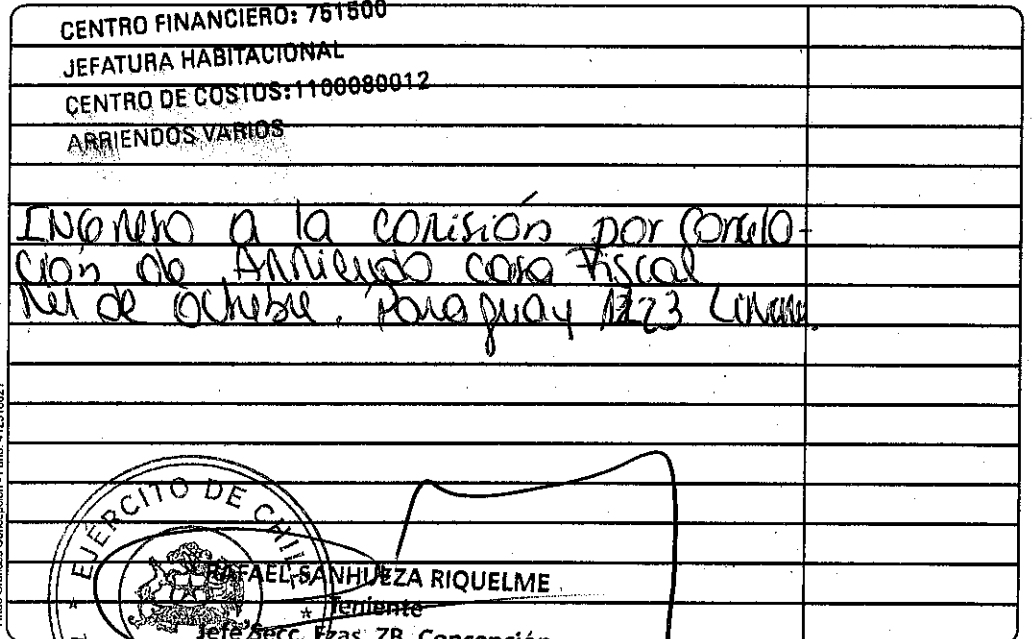 CENTRO FINANCIERO: 761500
JEFATURA HABITACIONAL
CENTRO DE COSTOS:1100080012
ARRIENDOS VARIOS
INGRESO a la comisión por
ción de Arriendo casa Fiscal
Mes de Octubre. Paraguay
EJERCITO DE CHILE
RAFAEL SANHUEZA RIQUELME
Teniente
Jefe Secc. Fzas. ZB. Concepción